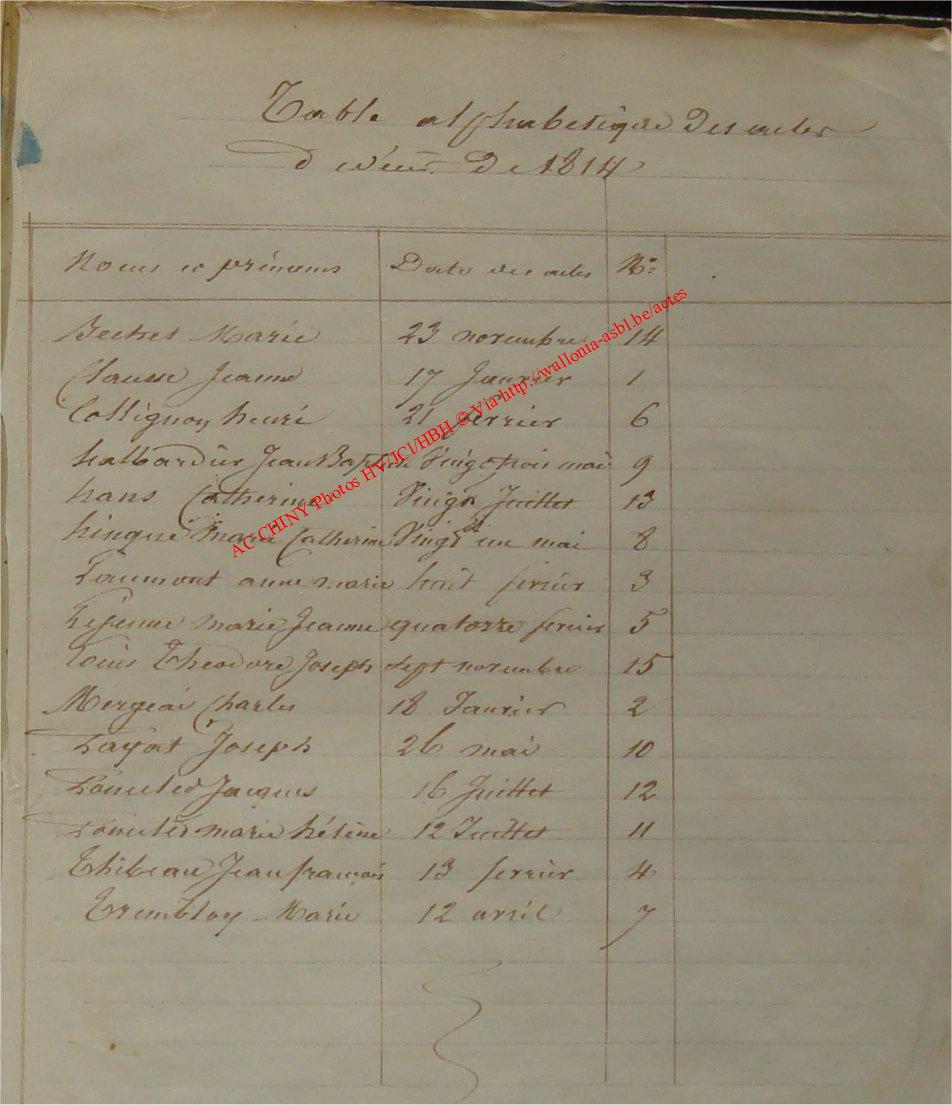 Table alphabetique Des actes
De 1814
Noms et prénoms Date des actes No
Bechet Marie 23 novembre 14
Clausse Jeanne 17 Janvier 1
Collignon henri 21 fevrier 6
halbardier Jean Baptiste Vingt trois mai 9
hans Catherine Vingt Juillet 13
hinque Marie Catherine Vingt et un mai 8
Laumont anne marie huit fevrier 3
Lejeune marie Jeanne quatorze fevrier 5
Louis Theodore Joseph sept novembre 15
Mergeai Charles 18 Janvier 2
Payot Joseph 26 mai 10
Jacques 16 Juillet 12
marie hélène 12 Juillet 11
Thibeau Jean francois 13 fevrier 4
Trembloy Marie 12 avril 7
AC CHINY Photos HV/JCl/HBH © Via http://wallonia-asbl.be/actes